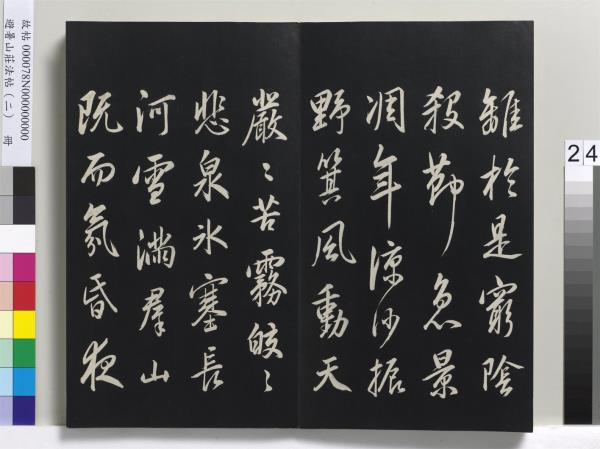 離於是窮陰
殺節急景
凋年涼沙振
野箕風動天
嚴〻苦霧皎〻
悲泉冰塞長
河雪滿羣山
既而氛昏夜
故帖 000078N000000000
避暑山莊法帖(二) 冊
24